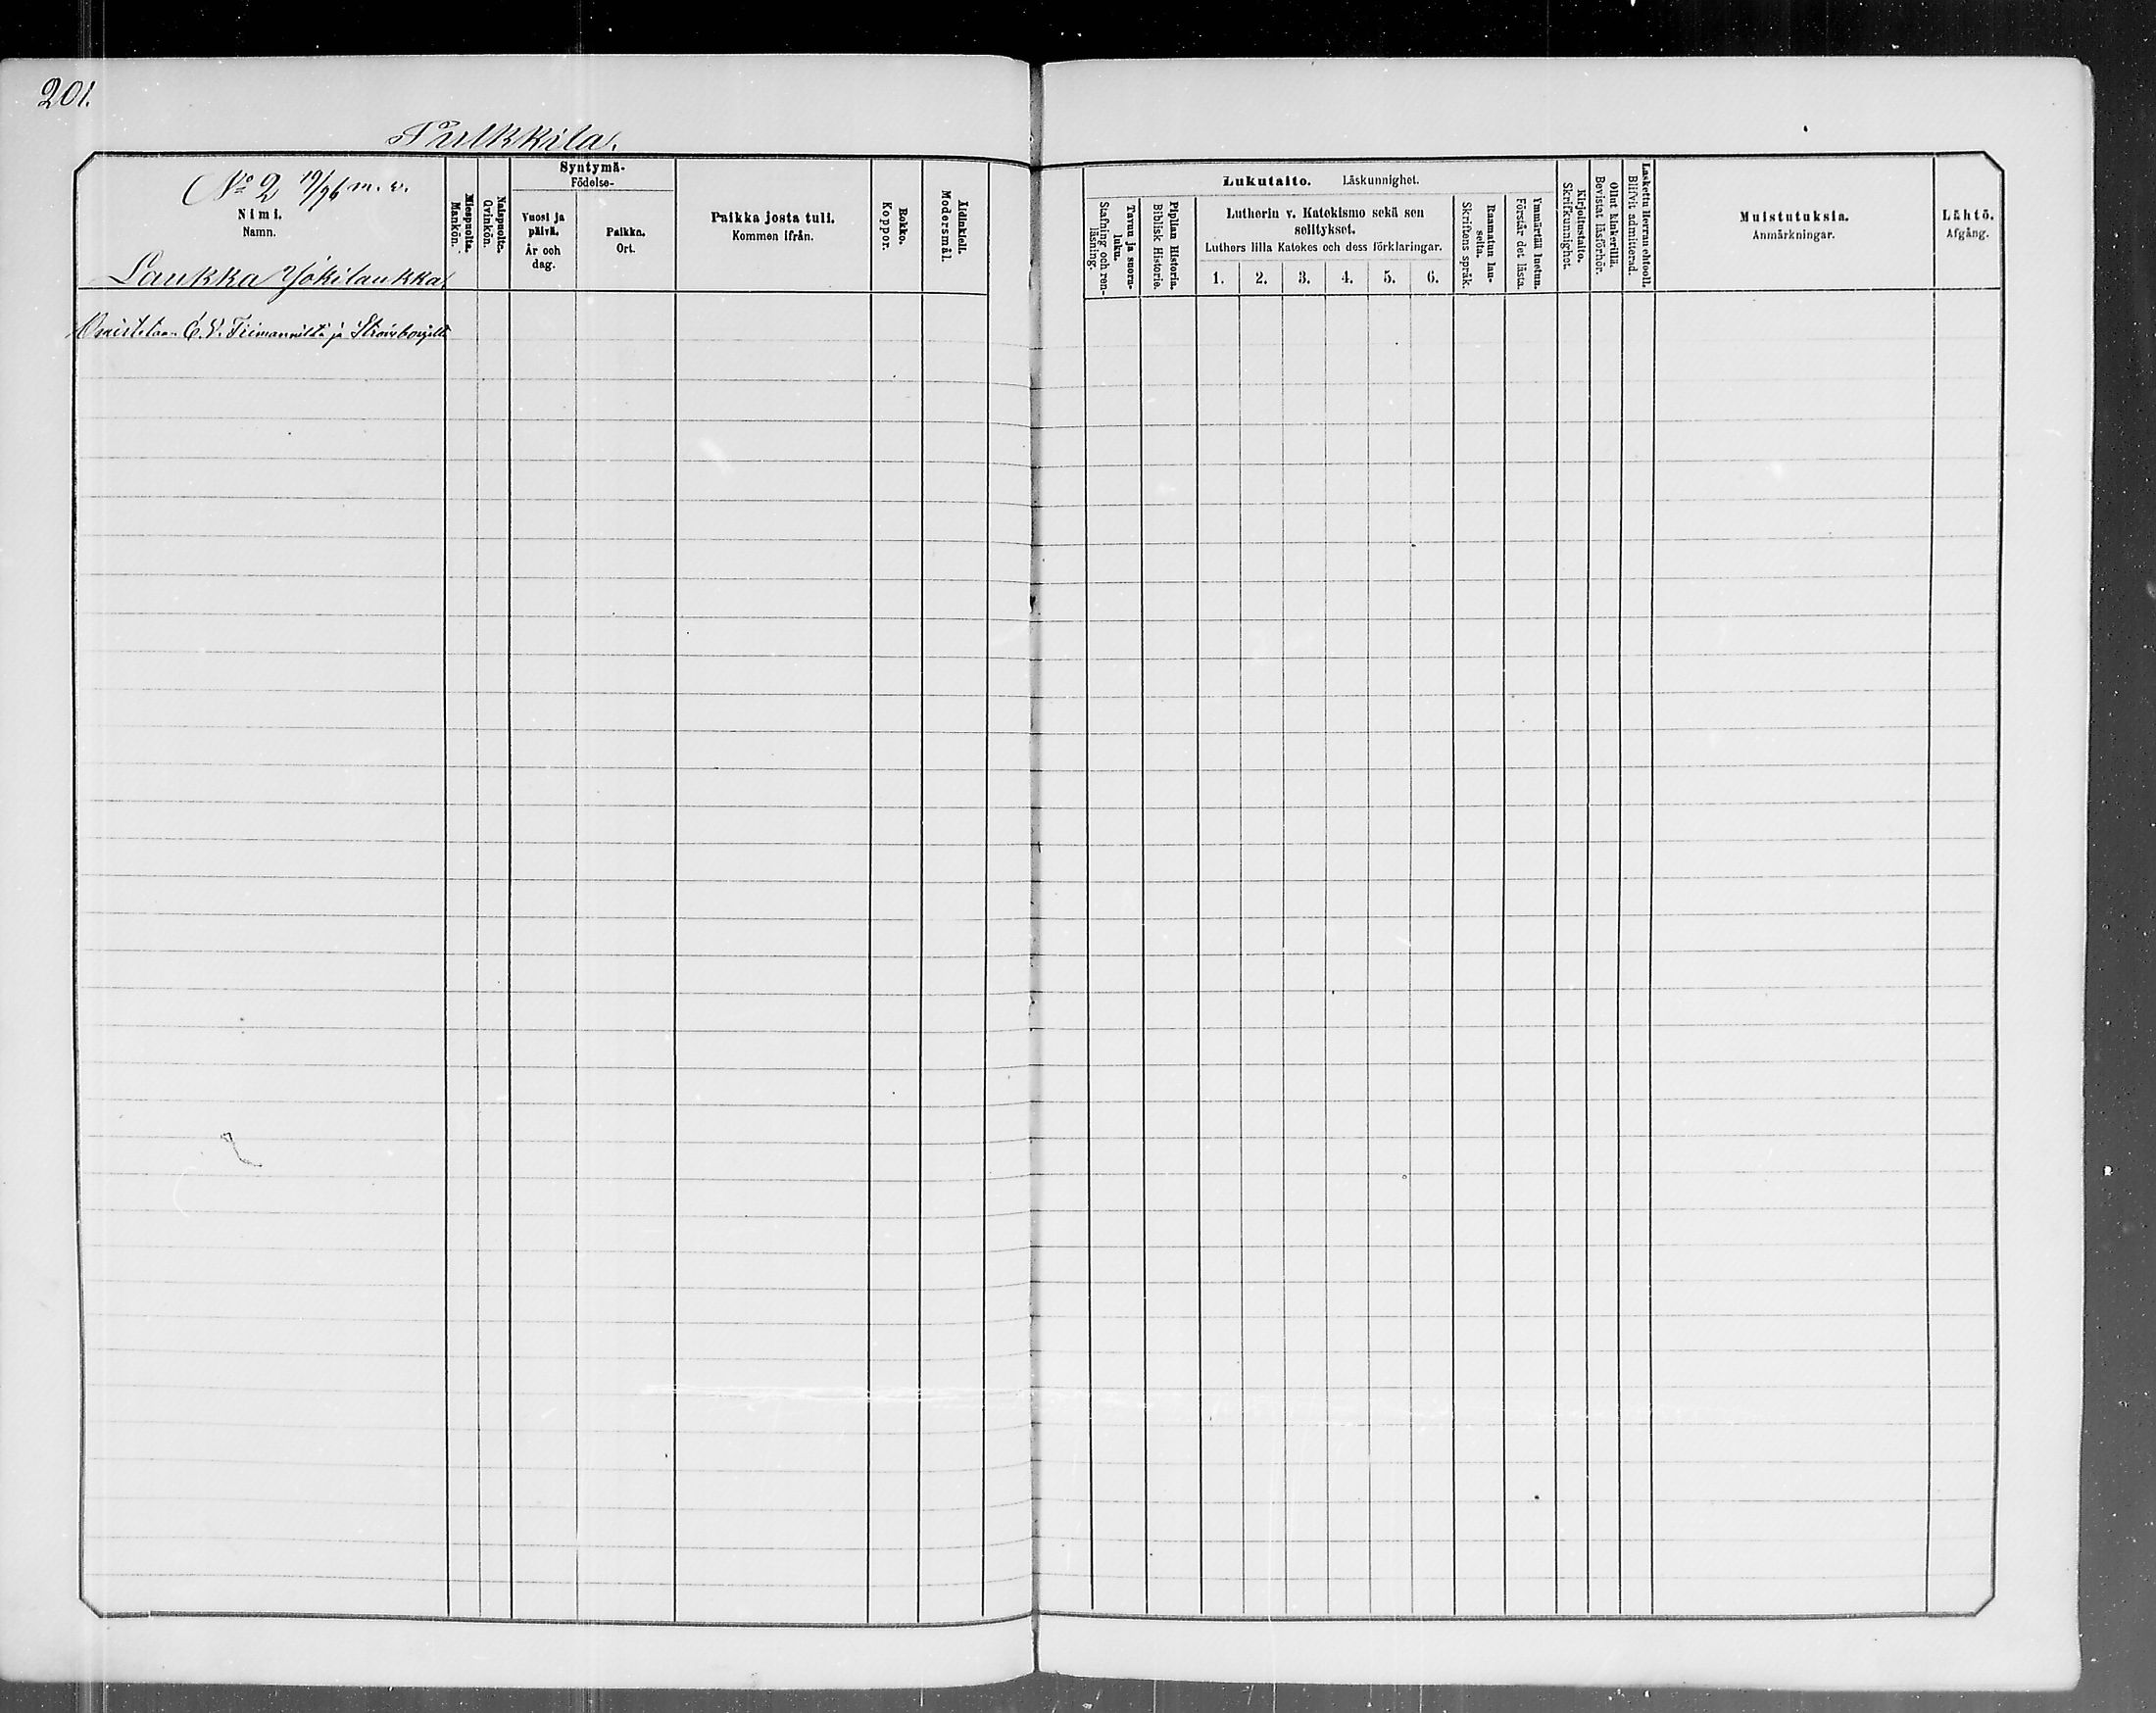 201.
Pulkkila.
No 2 19/96 m. v.
Nimi.
Namn.
Laukka Yökilaukka
Miespuolta.
Mankön.
Naispuolta.
Qvinkön.
Syntymä-
Födelse-
Vuosi ja
päivä.
År och
dag.
Paikka.
Ort.
Paikka josta tuli.
Kommen ifrån.
Rokko.
Koppor.
Äidinkieli.
Modersmål.
Omistetaan E. N. Tiimanniltä ja
Lukutaito. Läskunnighet.
Tavuu ja suora-
luku.
Stafning och ren-
läsning.
Piplian Historia.
Biblisk Historie.
Lutherin v. Katekismo sekä sen
selitykset.
Luthers lilla Katekes och dess förklaringar.
1. 2. 3. 4. 5. 6.
Raamatun lau-
seita.
Skriftens språk.
Ymmärtää luetun.
Förstår det lästa.
Kirjoitustaito.
Skrifkunnighet.
Ollut kinkerillä.
Bevistat läsförhör.
Laskettu Herran ehtooll.
Blifvit admitterad.
Muistutuksia.
Anmärkningar.
Lähtö.
Afgång.